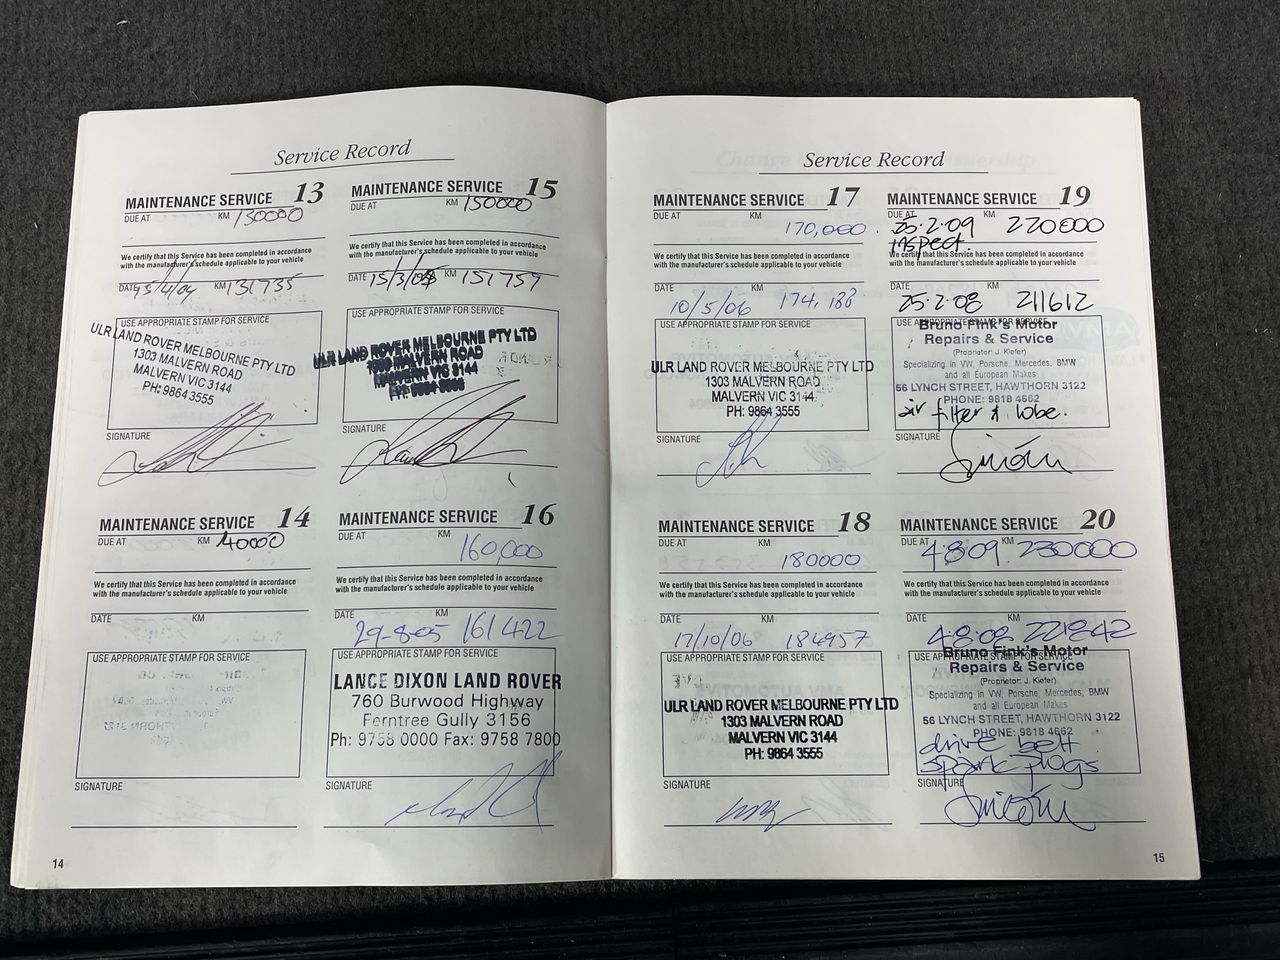 Service Record
MAINTENANCE SERVICE 13
DUE AT KM 130000
We certify that this Service has been completed in accordance
with the manufacturer's schedule applicable to your vehicle
DATE 15/4/04 KM 131735
USE APPROPRIATE STAMP FOR SERVICE
ULR LAND ROVER MELBOURNE PTY LTD
1303 MALVERN ROAD
MALVERN VIC 3144
PH: 9864 3555
SIGNATURE
MAINTENANCE SERVICE 14
DUE AT KM 140000
We certify that this Service has been completed in accordance
with the manufacturer's schedule applicable to your vehicle
DATE KM
USE APPROPRIATE STAMP FOR SERVICE
SIGNATURE
14
MAINTENANCE SERVICE 15
DUE AT KM 150000
We certify that this Service has been completed in accordance
with the manufacturer's schedule applicable to your vehicle
DATE 15/3/05 KM 151759
USE APPROPRIATE STAMP FOR SERVICE
ULR LAND ROVER MELBOURNE PTY LTD
1303 MALVERN ROAD
MALVERN VIC 3144
SIGNATURE
MAINTENANCE SERVICE 16
DUE AT KM
160,000
We certify that this Service has been completed in accordance
with the manufacturer's schedule applicable to your vehicle
DATE KM
29-8-05 161422
USE APPROPRIATE STAMP FOR SERVICE
LANCE DIXON LAND ROVER
760 Burwood Highway
Ferntree Gully 3156
Ph: 9758 0000 Fax: 9758 7800
SIGNATURE
Service Record
MAINTENANCE SERVICE 17
DUE AT KM
170,000
We certify that this Service has been completed in accordance
with the manufacturer's schedule applicable to your vehicle
DATE KM
10/5/06 174,188
USE APPROPRIATE STAMP FOR SERVICE
ULR LAND ROVER MELBOURNE PTY LTD
1303 MALVERN ROAD
MALVERN VIC 3144
PH: 9864 3555
SIGNATURE
MAINTENANCE SERVICE 18
DUE AT KM
180000
We certify that this Service has been completed in accordance
with the manufacturer's schedule applicable to your vehicle
DATE KM
17/10/06 184957
USE APPROPRIATE STAMP FOR SERVICE
ULR LAND ROVER MELBOURNE PTY LTD
1303 MALVERN ROAD
MALVERN VIC 3144
PH: 9864 3555
SIGNATURE
MAINTENANCE SERVICE 19
DUE AT KM
25.2.09 220000
inspect.
We certify that this Service has been completed in accordance
with the manufacturer's schedule applicable to your vehicle
DATE KM
25.2.08 211612
USE APPROPRIATE STAMP FOR SERVICE
Bruno Fink's Motor
Repairs & Service
(Proprietor: J. Kiefer)
Specializing in VW, Porsche, Mercedes, BMW
and all European Makes
56 LYNCH STREET, HAWTHORN 3122
PHONE: 9818 4662
air filter & lobe.
SIGNATURE
MAINTENANCE SERVICE 20
DUE AT KM
4.8.09 230000
We certify that this Service has been completed in accordance
with the manufacturer's schedule applicable to your vehicle
DATE KM
4.8.08 221842
USE APPROPRIATE STAMP FOR SERVICE
Bruno Fink's Motor
Repairs & Service
(Proprietor: J. Kiefer)
Specializing in VW, Porsche, Mercedes, BMW
and all European Makes
56 LYNCH STREET, HAWTHORN 3122
PHONE: 9818 4662
drive belt
spark plugs
SIGNATURE
15